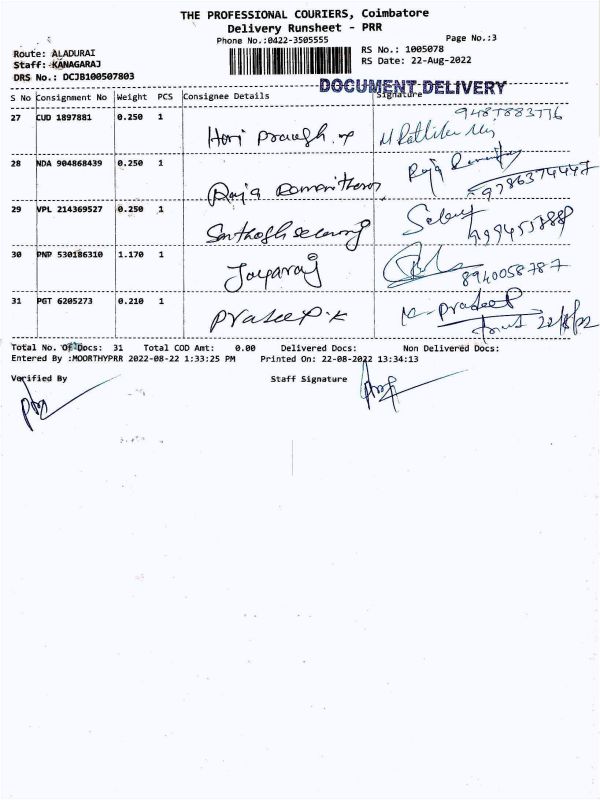 THE PROFESSIONAL COURIERS, Coimbatore
Delivery Runsheet - PRR
Phone No.:0422-3505555
Page No.:3
Route: ALADURAI
RS No.: 1005078
Staff: KANAGARAJ
RS Date: 22-Aug-2022
DRS No.: DCJB100507803
DOCUMENT DELIVERY
S No Consignment No Weight PCS Consignee Details Signature
27 CUD 1897881 0.250 1
28 NDA 904868439 0.250 1 Raja
9786374447
29 VPL 214369527 0.250 1
30 PNP 530186310 1.170 1 Jayaraj
8940058787
31 PGT 6205273 0.210 1 Pradeep.K K. Pradeep
22/8/22
Total No. Of Docs: 31 Total COD Amt: 0.00 Delivered Docs: Non Delivered Docs:
Entered By :MOORTHYPRR 2022-08-22 1:33:25 PM Printed On: 22-08-2022 13:34:13
Verified By Staff Signature